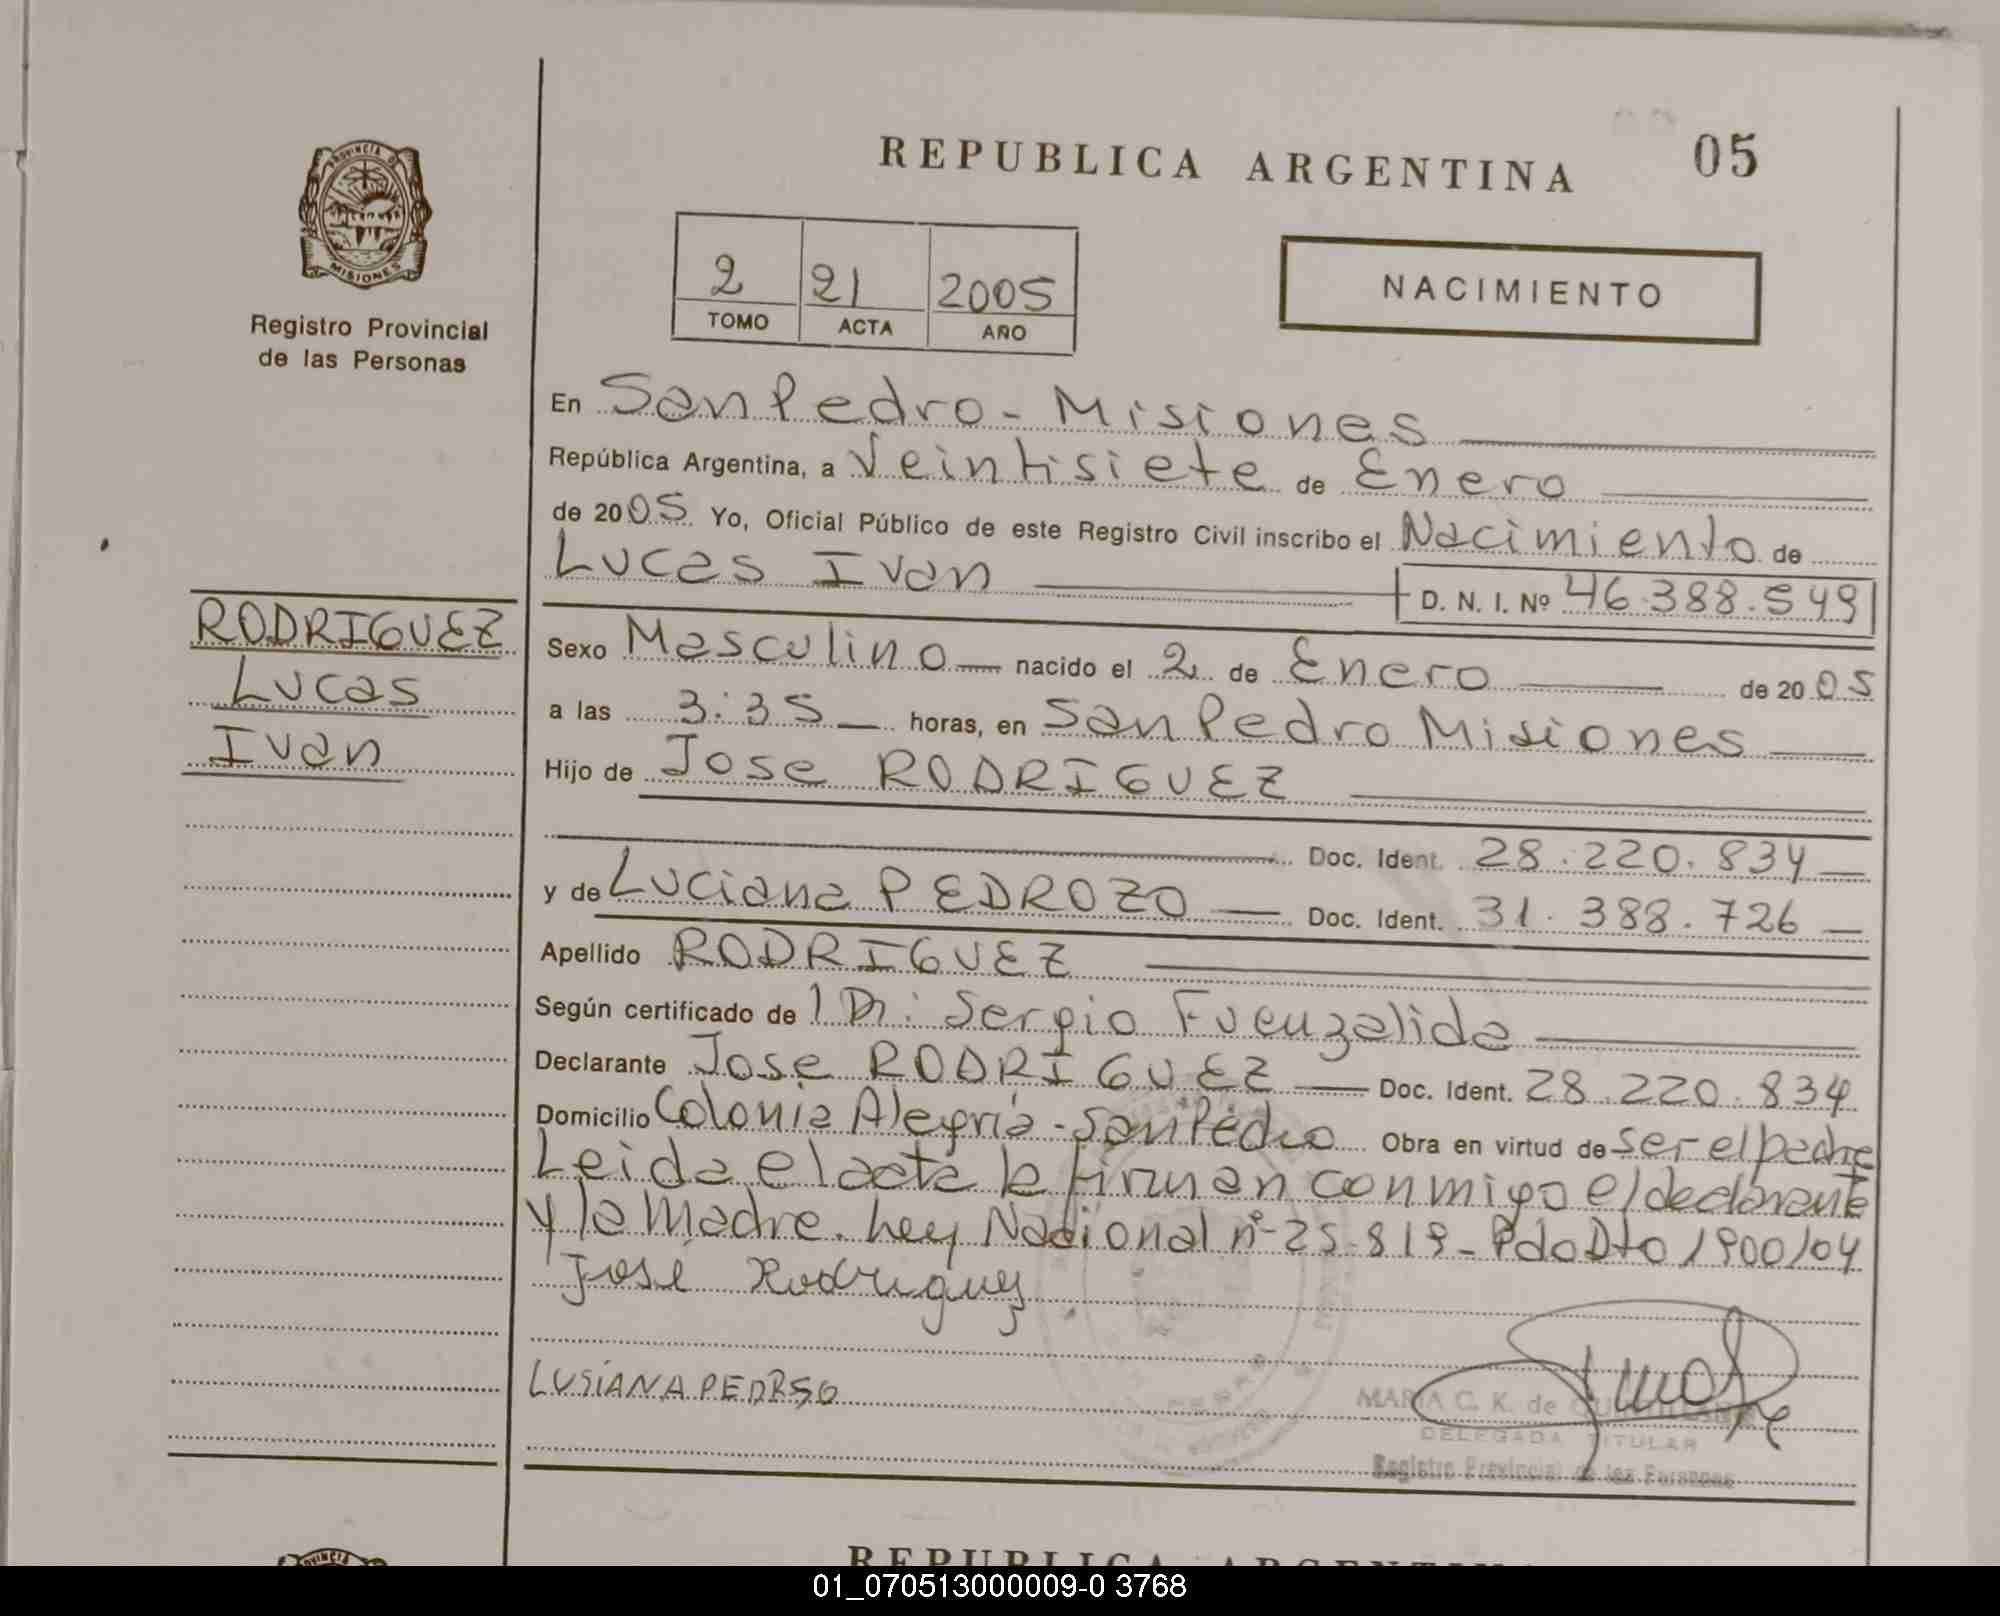 REPUBLICA ARGENTINA
05
PROVINCIA DE
MISIONES
Registro Provincial
de las Personas
2 21 2005
TOMO ACTA AÑO
NACIMIENTO
En San Pedro - Misiones
República Argentina, a Veintisiete de Enero
de 2005 Yo, Oficial Público de este Registro Civil inscribo el Nacimiento de
Lucas Ivan
D. N. I. Nº 46.388.549
RODRIGUEZ
Lucas
Ivan
Sexo Masculino nacido el 2 de Enero de 2005
a las 3:35 horas, en San Pedro Misiones
Hijo de Jose RODRIGUEZ
Doc. Ident. 28.220.834
y de Luciana PEDROZO Doc. Ident. 31.388.726
Apellido RODRIGUEZ
Según certificado de 1 Dr: Sergio Fuenzalida
Declarante Jose RODRIGUEZ Doc. Ident. 28.220.834
Domicilio Colonia Alegría - San Pedro Obra en virtud de ser el padre
Leida el acta la firman conmigo el declarante
y la Madre. Ley Nacional nº 25.819 - Pdo Dto 1900/04
José Rodriguez
LUSIANA PEDRSO
MARIA C. K. de
DELEGADA TITULAR
Registro Provincial de las Personas
REPUBLICA ARGENTINA
01_070513000009-0 3768